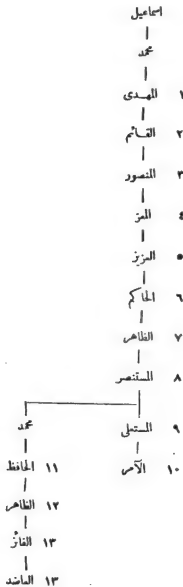 اسماعيل
محمد
١ المهدى
٢ القائم
٣ المنصور
٤ المعز
٥ العزيز
٦ الحاكم
٧ الظاهر
٨ المستنصر
٩ المستعلى
محمد
١٠ الآمر
١١ الحافظ
١٢ الظاهر
١٣ الفائز
١٣ العاضد